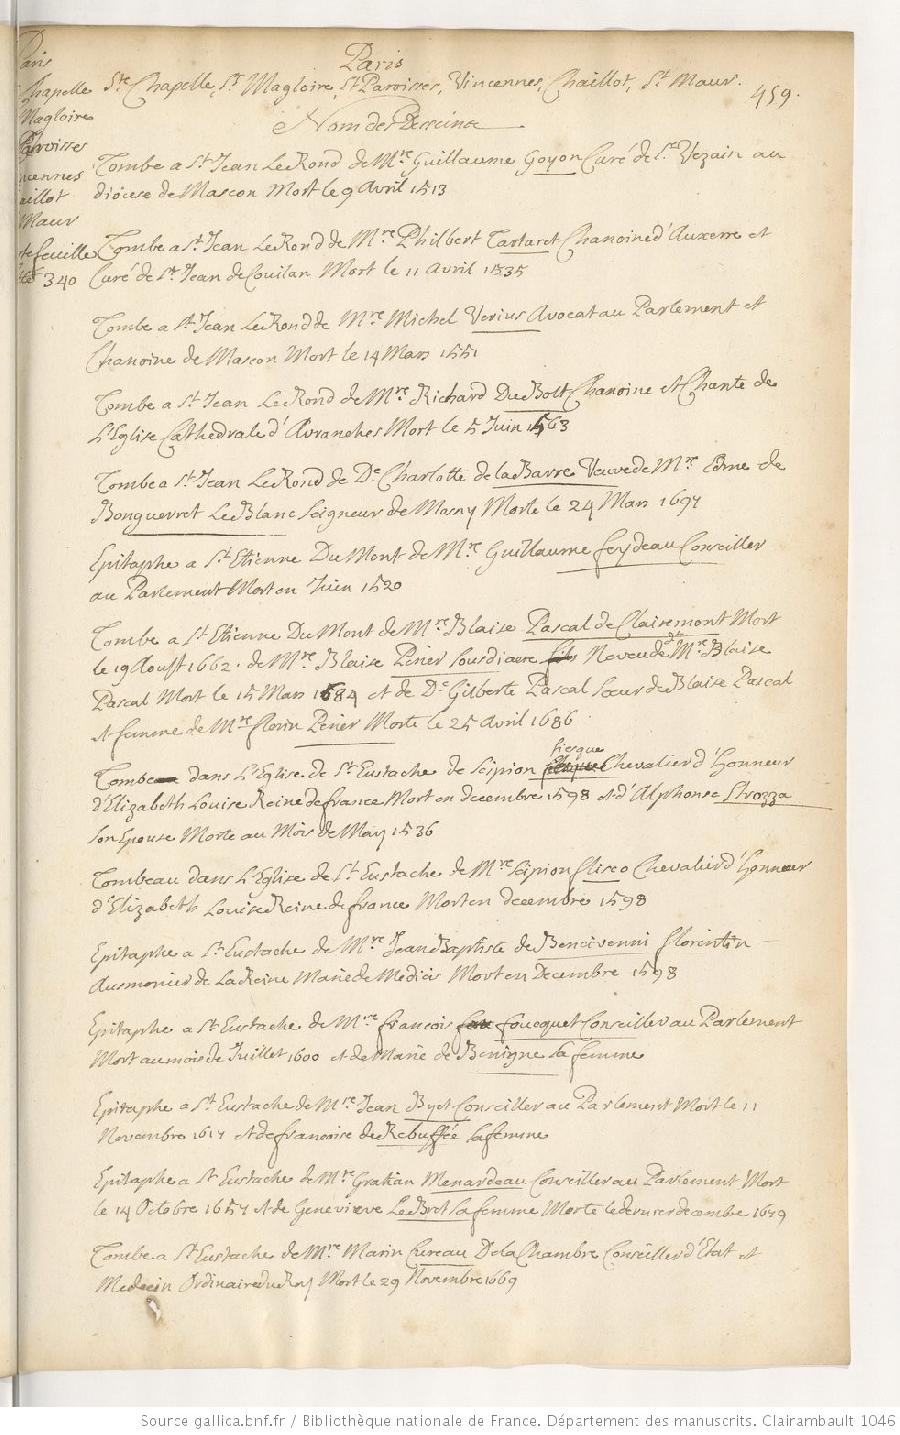 Paris
Ste Chapelle, St Magloire, St Paroisses, Vincennes, Chaillot, St Maur.
459.
Nom des Dessins
Paris
Chapelle
Magloire
Paroisses
Vincennes
aillot
Maur
feuille
340
Tombe a St Jean Le Rond de Mre Guillaume Goyon Curé de St Vezain au
diocese de Mascon Mort le 9 Avril 1513
Tombe a St Jean Le Rond de Mre Philbert Tartaret Chanoine d'Auxerre et
Curé de St Jean de Couilan Mort le 11 Avril 1535
Tombe a St Jean Le Rond de Mre Michel Verius Avocat au Parlement et
Chanoine de Mascon Mort le 14 Mars 1551
Tombe a St Jean Le Rond de Mre Richard Du Bolt Chanoine et Chantre de
L'Eglise Cathedrale d'Avranches Mort le 5 Juin 1563
Tombe a St Jean Le Rond de De Charlotte de la Barre Veuve de Mre Edme de
Bonguerret Le Blanc Seigneur de Marny Morte le 24 Mars 1697
Epitaphe a St Etienne Du Mont de Mre Guillaume feydeau Conseiller
au Parlement Mort en Juin 1520
Tombe a St Etienne Du Mont de Mre Blaise Pascal de Clairemont Mort
le 19 Aoust 1662. de Mre Blaise Perier Sousdiacre fils Neveu de Mre Blaise
Pascal Mort le 15 Mars 1684 et de De Gilberte Pascal Sœur de Blaise Pascal
et femme de Mre florin Perier Morte le 25 Avril 1686
fiesque
Tombe dans L'Eglise de St Eustache de Scipion Chevalier d'Honneur
d'Elizabeth Louise Reine de france Mort en decembre 1598 et d'Alphonse Strozza
son Epouse Morte au Mois de May 1536
Tombeau dans L'Eglise de St Eustache de Mre Scipion flisco Chevalier d'Honneur
d'Elizabeth Louise Reine de france Mort en decembre 1598
Epitaphe a St Eustache de Mre Jean Baptiste de Bencivenni florintin
Ausmonier de La Reine Marie de Medicis Mort en Decembre 1598
Epitaphe a St Eustache de Mre francois foucquet Conseiller au Parlement
Mort au mois de Juillet 1600 et de Marie de Benigne sa femme
Epitaphe a St Eustache de Mre Jean Byet Conseiller au Parlement Mort le 11
Novembre 1617 et de francoise de Rebuffée sa femme
Epitaphe a St Eustache de Mre Gratian Menardeau Conseiller au Parlement Mort
le 14 Octobre 1657 et de Genevieve Le Bret sa femme Morte le dernier decembre 1659
Tombe a St Eustache de Mre Marin Cureau De la Chambre Conseiller d'Etat et
Medecin Ordinaire du Roy Mort le 29 Novembre 1669
Source gallica.bnf.fr / Bibliothèque nationale de France. Département des manuscrits. Clairambault 1046